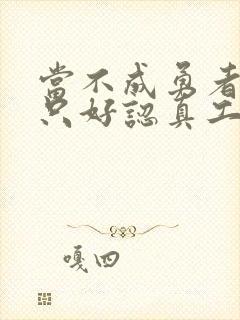 當不成勇者
只好認真工
嘎四